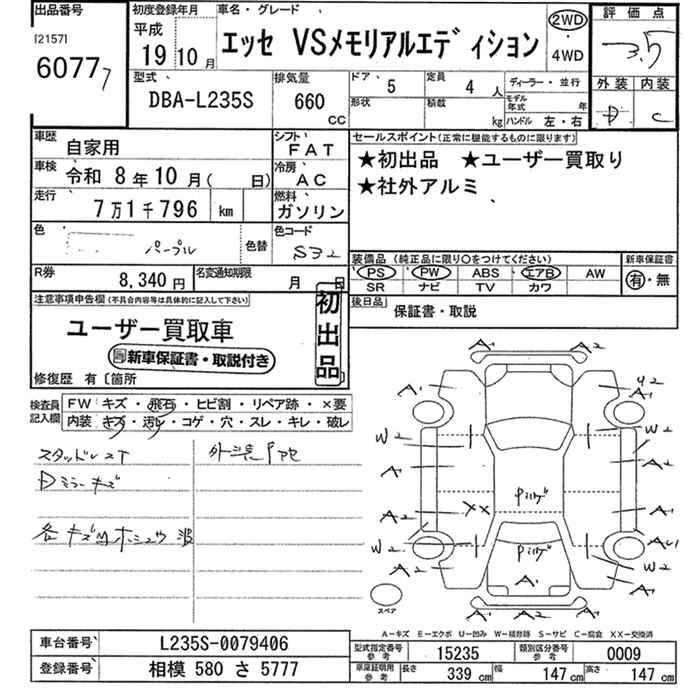 出品番号
[2157]
6077
7
初度登録年月
平成
19 10月
車名・グレード
エッセ VSメモリアルエディション
2WD
4WD
評価点
3.5
外装 内装
D C
型式
DBA-L235S
排気量
660
CC
ドア 5
定員 4 人
形状
積載 kg
ディーラー・並行
モデル年式 年
ハンドル 左・右
車歴 自家用
シフト FAT
車検 令和 8年 10月( 日)
冷房 AC
走行 7万1千796 km
燃料 ガソリン
色 パープル
色替
色コード S32
R券 8,340 円
名変通知期限 月 日
セールスポイント(正常に機能するものに限ります)
★初出品 ★ユーザー買取り
★社外アルミ
装備品(純正品に限り○をつけてください)
新車保証書
PS PW ABS エアB AW
SR ナビ TV カワ
有・無
後日品
保証書・取説
注意事項申告欄(不具合内容等は具体的に記入して下さい)
ユーザー買取車
新車保証書・取説付き
初出品
修復歴 有〔箇所
検査員記入欄
FW キズ・飛石・ヒビ割・リペア跡・×要
内装 キズ・汚レ・コゲ・穴・スレ・キレ・破レ
スタッドレスT
Dミラーキズ
各キズ凹ホシュウ波
A1 A2
A2 A2 U2
W2 W2
A1 A2
Pルーフ
XX
A2 A1
W2 W2
A2 A1
A1
A1 A2
スペア
A-キズ E-エクボ U-凹ミ W-補修跡 S-サビ C-腐食 XX-交換済
車台番号 L235S-0079406
登録番号 相模 580 さ 5777
型式指定番号 参考 15235
類別区分番号 参考 0009
車庫証明用 参考 長さ 339 cm 幅 147 cm 高さ 147 cm